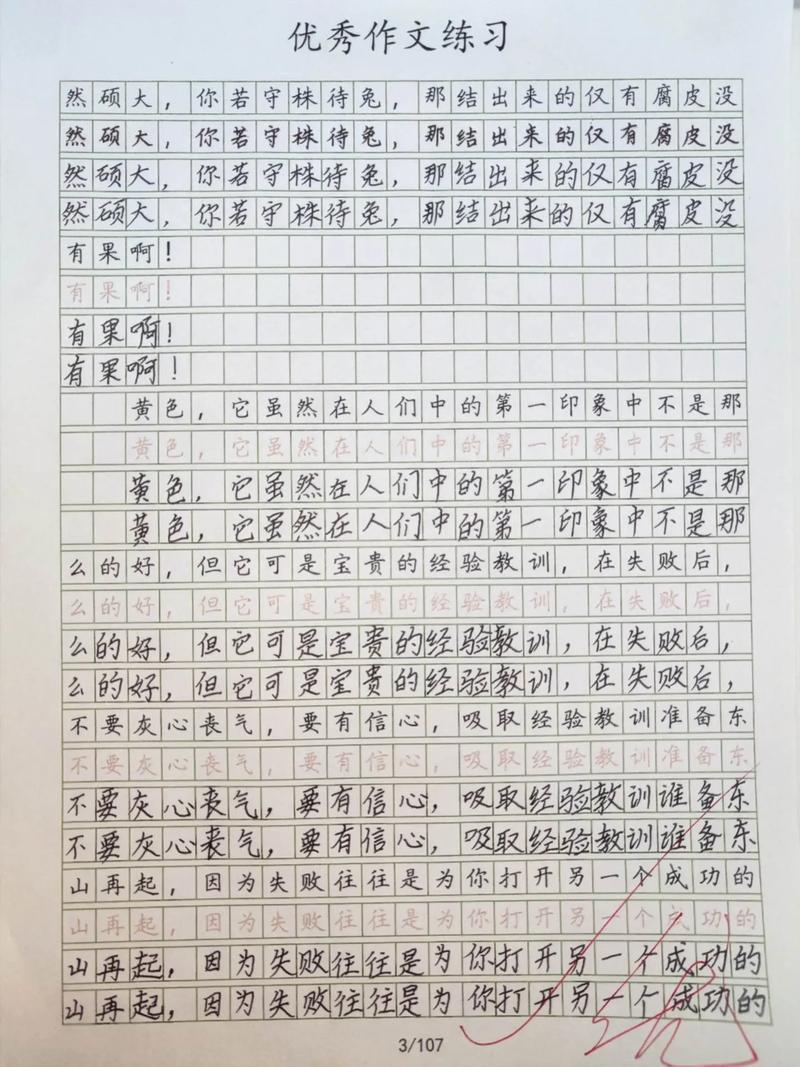 优秀作文练习
然硕大，你若守株待兔，那结出来的仅有腐皮没
然硕大，你若守株待兔，那结出来的仅有腐皮没
然硕大，你若守株待兔，那结出来的仅有腐皮没
然硕大，你若守株待兔，那结出来的仅有腐皮没
有果啊！
有果啊！
有果啊！
有果啊！
黄色，它虽然在人们中的第一印象中不是那
黄色，它虽然在人们中的第一印象中不是那
黄色，它虽然在人们中的第一印象中不是那
黄色，它虽然在人们中的第一印象中不是那
么的好，但它可是宝贵的经验教训，在失败后，
么的好，但它可是宝贵的经验教训，在失败后，
么的好，但它可是宝贵的经验教训，在失败后，
么的好，但它可是宝贵的经验教训，在失败后，
不要灰心丧气，要有信心，吸取经验教训准备东
不要灰心丧气，要有信心，吸取经验教训准备东
不要灰心丧气，要有信心，吸取经验教训谁备东
不要灰心丧气，要有信心，吸取经验教训谁备东
山再起，因为失败往往是为你打开另一个成功的
山再起，因为失败往往是为你打开另一个成功的
山再起，因为失败往往是为你打开另一个成功的
山再起，因为失败往往是为你打开另一个成功的
3/107